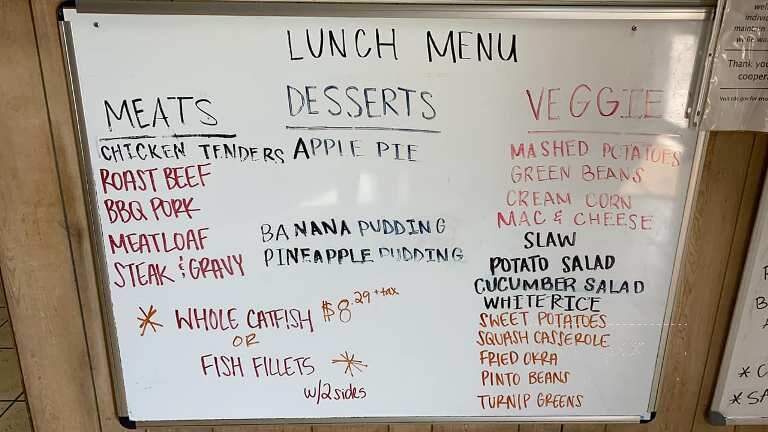 LUNCH MENU
MEATS
CHICKEN TENDERS
ROAST BEEF
BBQ PORK
MEATLOAF
STEAK & GRAVY
DESSERTS
APPLE PIE
BANANA PUDDING
PINEAPPLE PUDDING
VEGGIE
MASHED POTATOES
GREEN BEANS
CREAM CORN
MAC & CHEESE
SLAW
POTATO SALAD
CUCUMBER SALAD
WHITE RICE
SWEET POTATOES
SQUASH CASSEROLE
FRIED OKRA
PINTO BEANS
TURNIP GREENS
* WHOLE CATFISH $8.29 + tax
OR
FISH FILLETS *
w/2 sides
Thank you